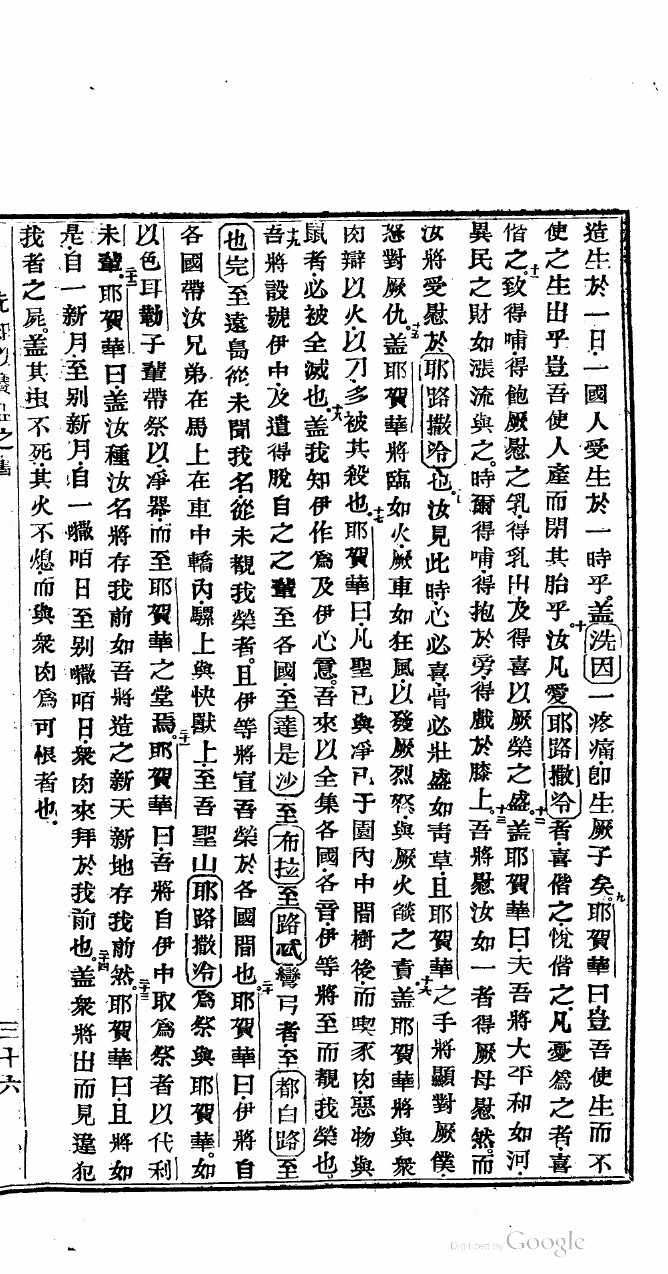 造生於一日·一國人受生於一時乎。蓋洗因一疼痛·卽生厥子矣。九耶賀華曰豈吾使生而不
使之生出乎豈吾使人產而閉其胎乎。十汝凡愛耶路撒冷者·喜偕之·悅偕之·凡憂爲之者·喜
偕之。十一致得哺·得飽厥慰之乳·得乳出·及得喜以厥榮之盛。十二蓋耶賀華曰·夫吾將大平和如河·
異民之財如漲流與之。時爾得哺·得抱於旁·得戲於膝上。十三吾將慰汝如一者得厥母慰然。而
汝將受慰於耶路撒冷也。汝見此時·心必喜·骨必壯盛如靑草·且耶賀華之手將顯對厥僕·
怒對厥仇。十五蓋耶賀華將臨如火·厥車如狂風·以發厥烈怒·與厥火燄之責。十六蓋耶賀華將與衆
肉辯以火·以刀·多被其殺也。十七耶賀華曰·凡聖己與凈己于園內中間樹後·而喫豕肉·惡物與
鼠者·必被全滅也。十八蓋我知伊作爲及伊心意。吾來以全集各國·各音·伊等將至而覩我榮也。
十九吾將設號伊中·及遣得脫自之之輩至各國·至達是沙·至布拉·至路忒·彎弓者·至都白路·至
也完·至遠島從未聞我名·從未觀我榮者。且伊等將宣吾榮於各國間也。二十耶賀華曰·伊將自
各國帶汝兄弟在馬上·在車中·轎內·騾上·與快獸上·至吾聖山耶路撒冷爲祭與耶賀華·如
以色耳勒子輩帶祭以凈器·而至耶賀華之堂焉。二十一耶賀華曰·吾將自伊中取爲祭者以代利
未輩。二十二耶賀華曰·蓋汝種汝名將存我前·如吾將造之新天新地存我前然。二十三耶賀華曰·且將如
是·自一新月·至别新月·自一𠺕咟日至别𠺕咟日·衆肉來拜於我前也。二十四蓋衆將出而見違犯
我者之屍。蓋其虫不死·其火不熄·而與衆肉爲可恨者也.
三十六
Digitized by Google